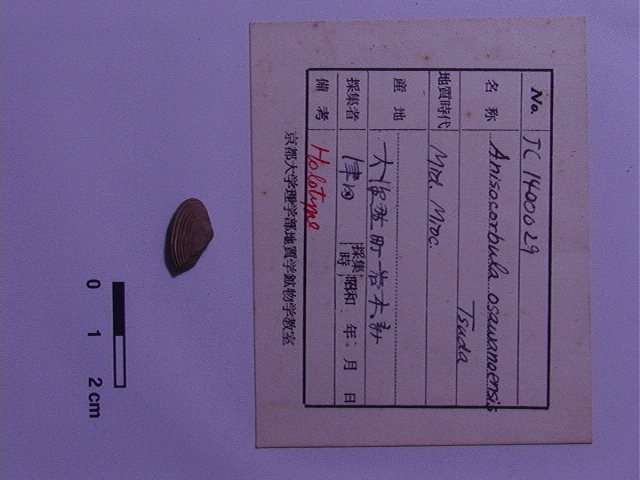 No. JC 1400029
名称 Anisocorbula osawanoensis
Tsuda
地質時代 Mid. Mioc.
産地 大沢野町
採集者 津田 採集時 昭和 年 月 日
備考 Holotype
京都大学理学部地質学鉱物学教室
0 1 2 cm